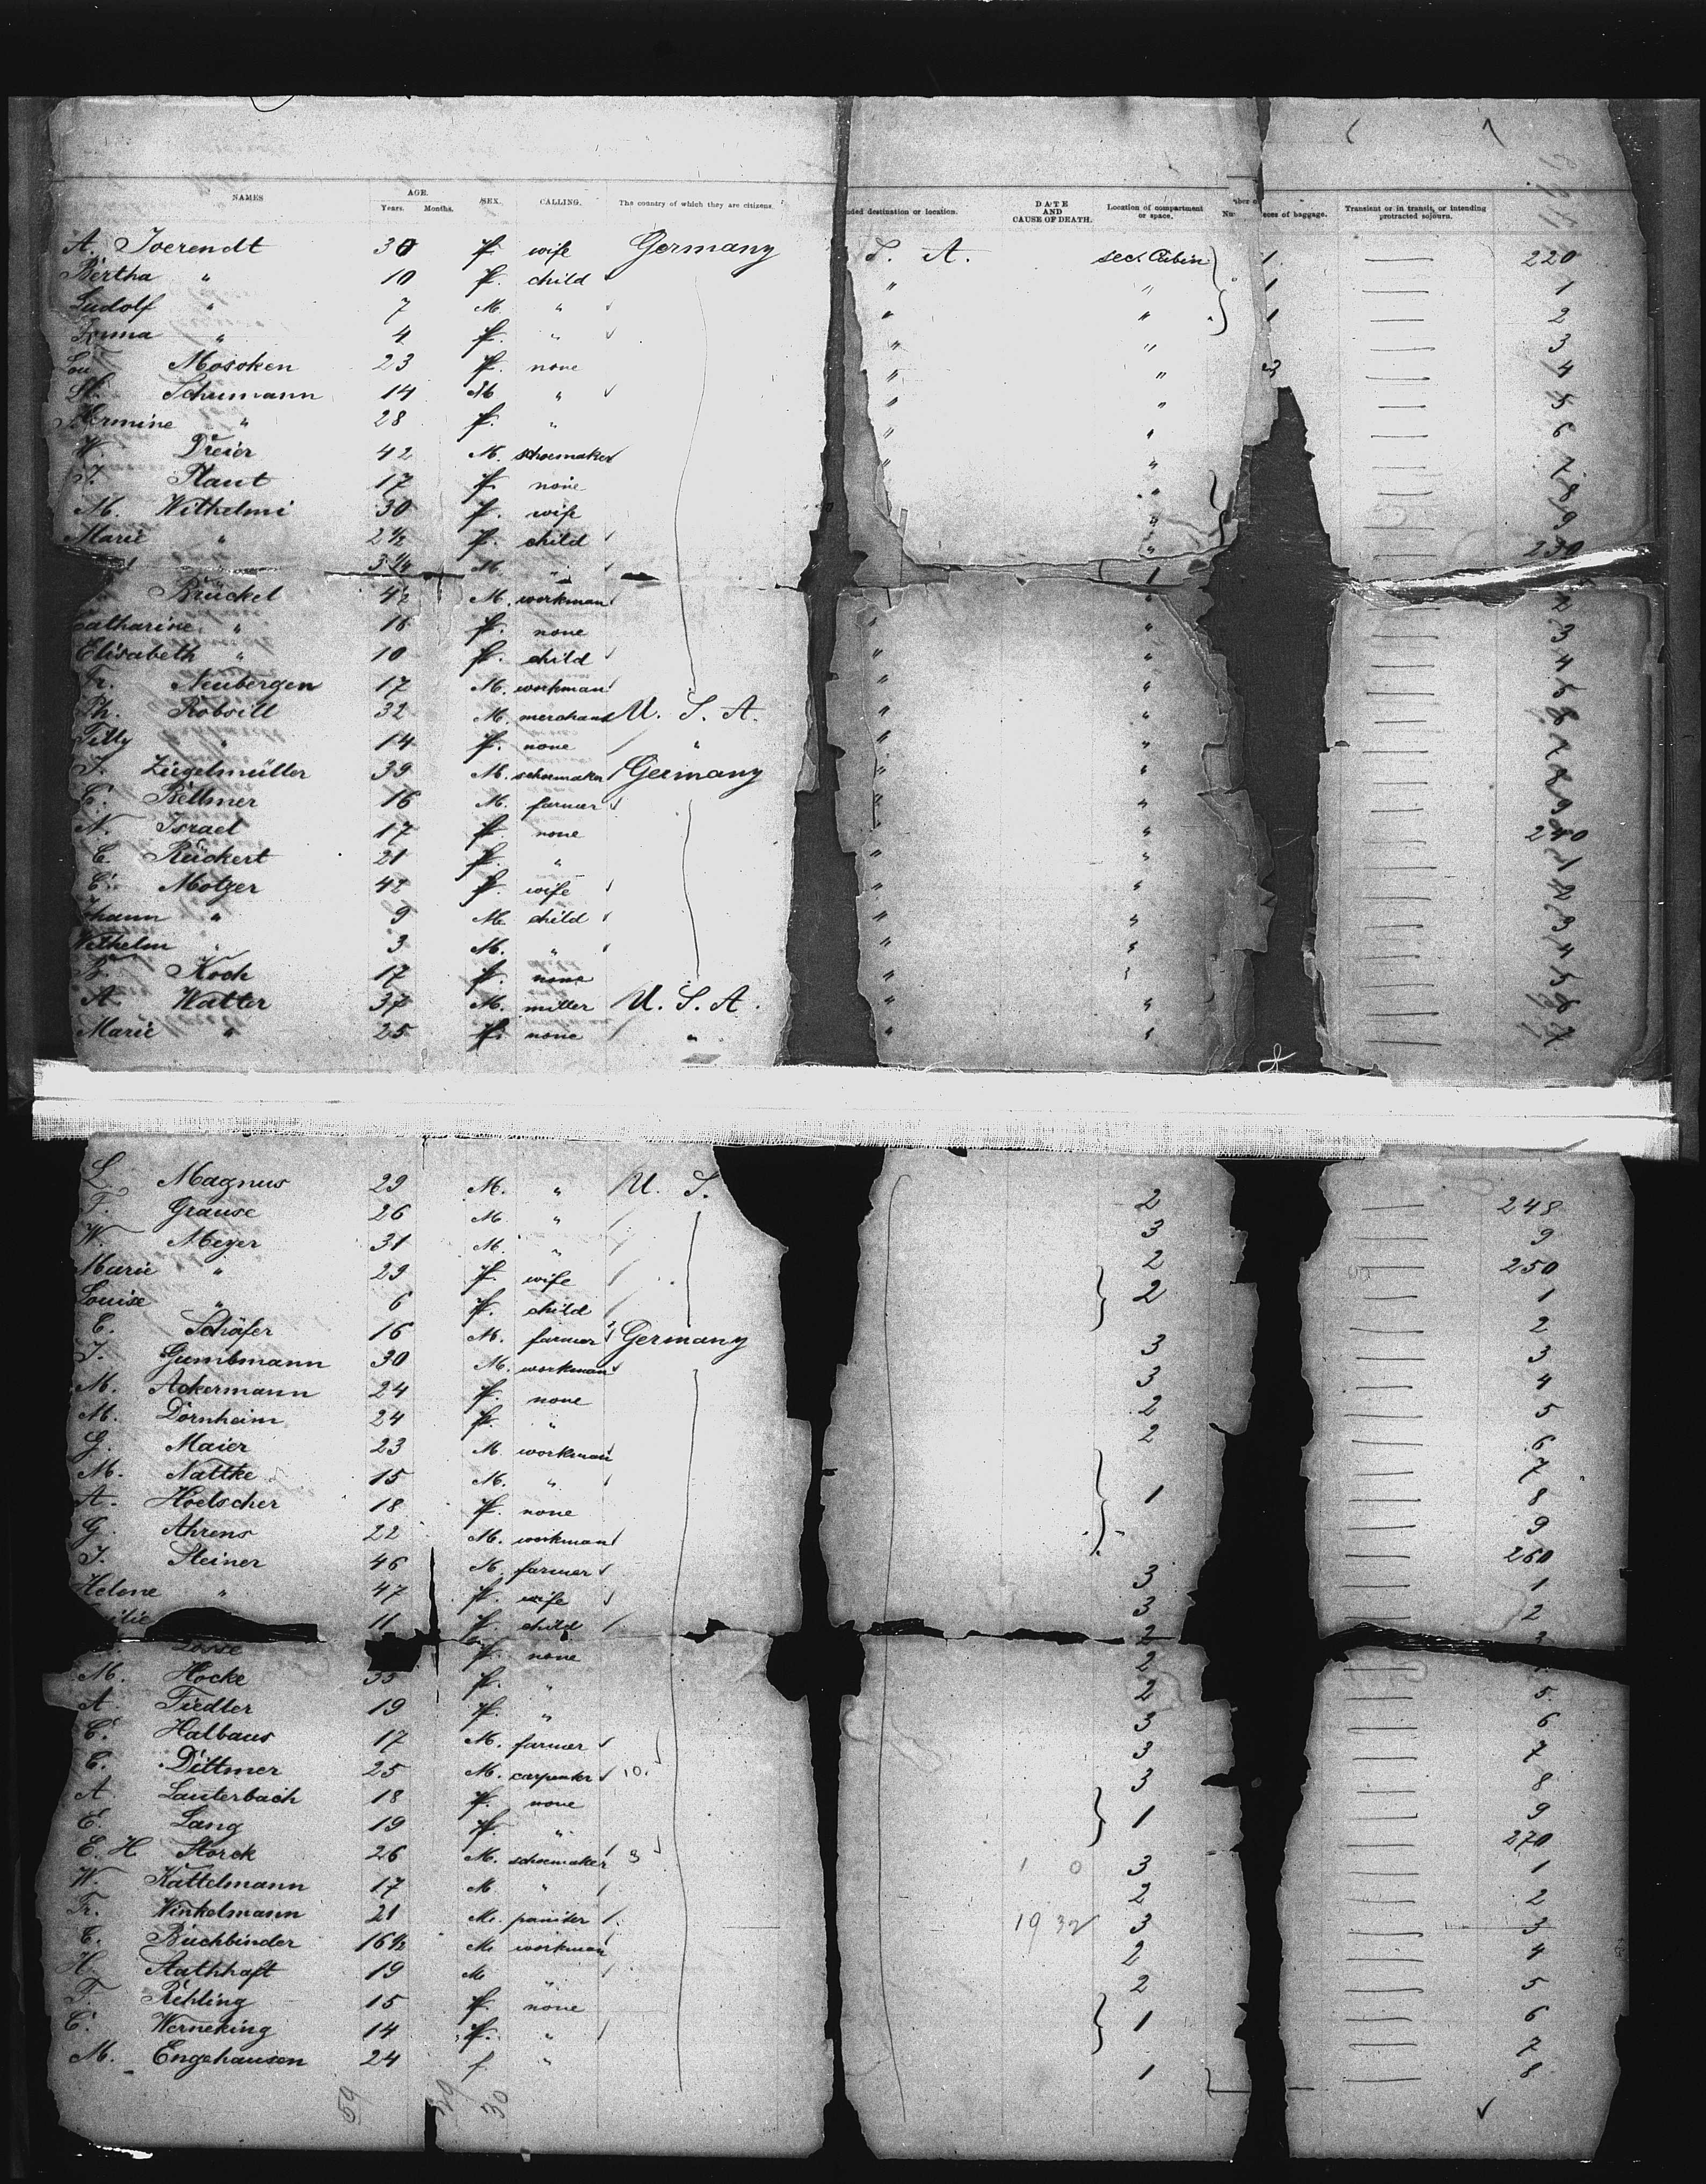 NAMES AGE. Years. Months. SEX. CALLING. The country of which they are citizens. nded destination or location. DATE AND CAUSE OF DEATH. Location of compartment or space. eces of baggage. Transient or in transit, or intending protracted sojourn.
A. Joerendt 30 f. wife Germany S. A. sec. Cabin 1 — 220
Bertha " 10 f. child " " 1 — 1
Ludolf " 7 M. " " " 1 — 2
Emma " 4 f. " " " — 3
Mosoken 23 f. none " " 3 — 4
Schumann 14 M. " " " — 5
Hermine " 28 f. " " " — 6
W. Dreier 42 M. shoemaker " " — 7
Plaut 17 f. none " — 8
M. Wilhelmi 30 f. wife " — 9
Marie " 2½ f. child " — 230
3¼ M. " 1
Brückel 42 M. workman " — 2
Catharine " 18 f. none " " — 3
Elisabeth " 10 f. child " " — 4
Fr. Neubergen 17 M. workman " " — 5
Th. Robvill 32 M. merchant U. S. A. " " — 6
Tilly " 14 f. none " " " — 7
J. Ziegelmüller 39 M. shoemaker Germany " " — 8
C. Bellmer 16 M. farmer " " — 9
N. Israel 17 f. none " " — 240
C. Rückert 21 f. " " " — 1
C. Motzer 42 f. wife " " — 2
Johann " 9 M. child " " — 3
Wilhelm " 3 M. " " " — 4
Koch 17 f. none " " — 5
A. Walter 37 M. miller U. S. A. " " — 6
Marie " 25 f. none " " " — 7
L. Magnus 29 M. " U. S. 2 — 248
F. Grause 26 M. " 3 — 9
W. Meyer 31 M. " 2 — 250
Marie " 29 f. wife 2 — 1
Louise " 6 f. child — 2
E. Schäfer 16 M. farmer Germany 3 — 3
J. Gumbmann 30 M. workman 3 — 4
M. Ackermann 24 f. none 2 — 5
M. Dornheim 24 f. " 2 — 6
G. Maier 23 M. workman — 7
M. Nattke 15 M. " 1 — 8
A. Hoelscher 18 f. none — 9
G. Ahrens 22 M. workman — 260
J. Steiner 46 M. farmer 3 — 1
Helene " 47 f. wife 3 — 2
11 f. child 2 — 3
f. none 2 —
M. Hocke 35 f. " 2 — 5
A. Fiedler 19 f. " 3 — 6
C. Halbaus 17 M. farmer 3 — 7
C. Dittmer 25 M. carpenter 10. 3 — 8
A. Lauterbach 18 f. none 1 — 9
E. Lang 19 f. " — 270
E. H Storck 26 M. shoemaker 3 1 0 3 — 1
W. Kattelmann 17 M. " 2 — 2
Fr. Winkelmann 21 M. painter 19 32 3 — 3
C. Buchbinder 16½ M. workman 2 — 4
H. Stathhaft 19 M. " 2 — 5
F. Rehling 15 f. none 1 — 6
C. Werneking 14 f. " — 7
M. Engehausen 24 f " 1 — 8
59 29 30